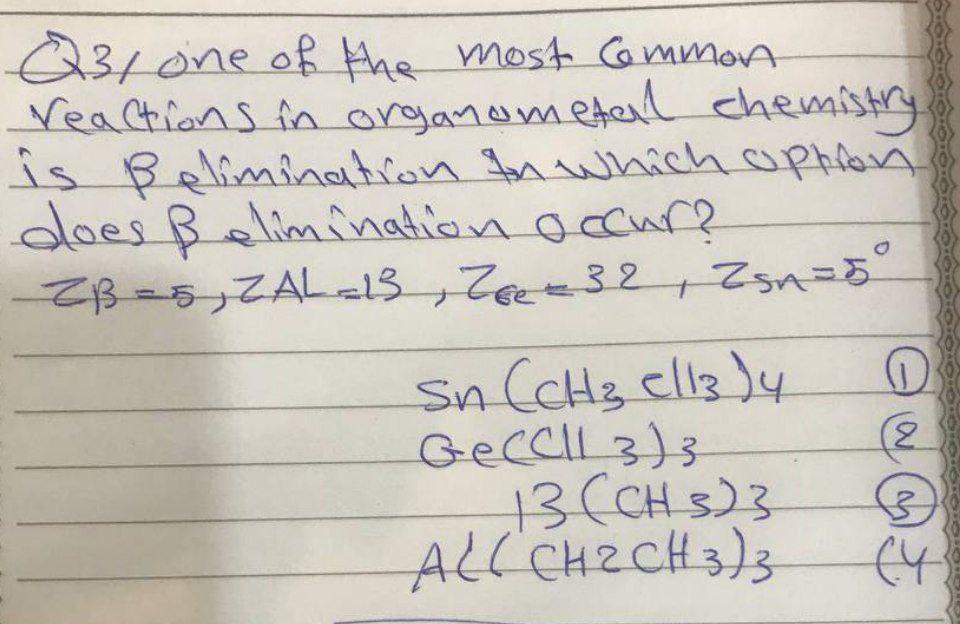 Q3/ one of the most Common
reactions in organometal chemistry
is β elimination In which option
does β elimination occur?
Zβ=5, ZAL=13, ZGe=32, ZSn=5°
Sn(CH3 cll3)4 ①
Ge(Cll3)3 (2
13(CH3)3 ③
All(CH2CH3)3 (4